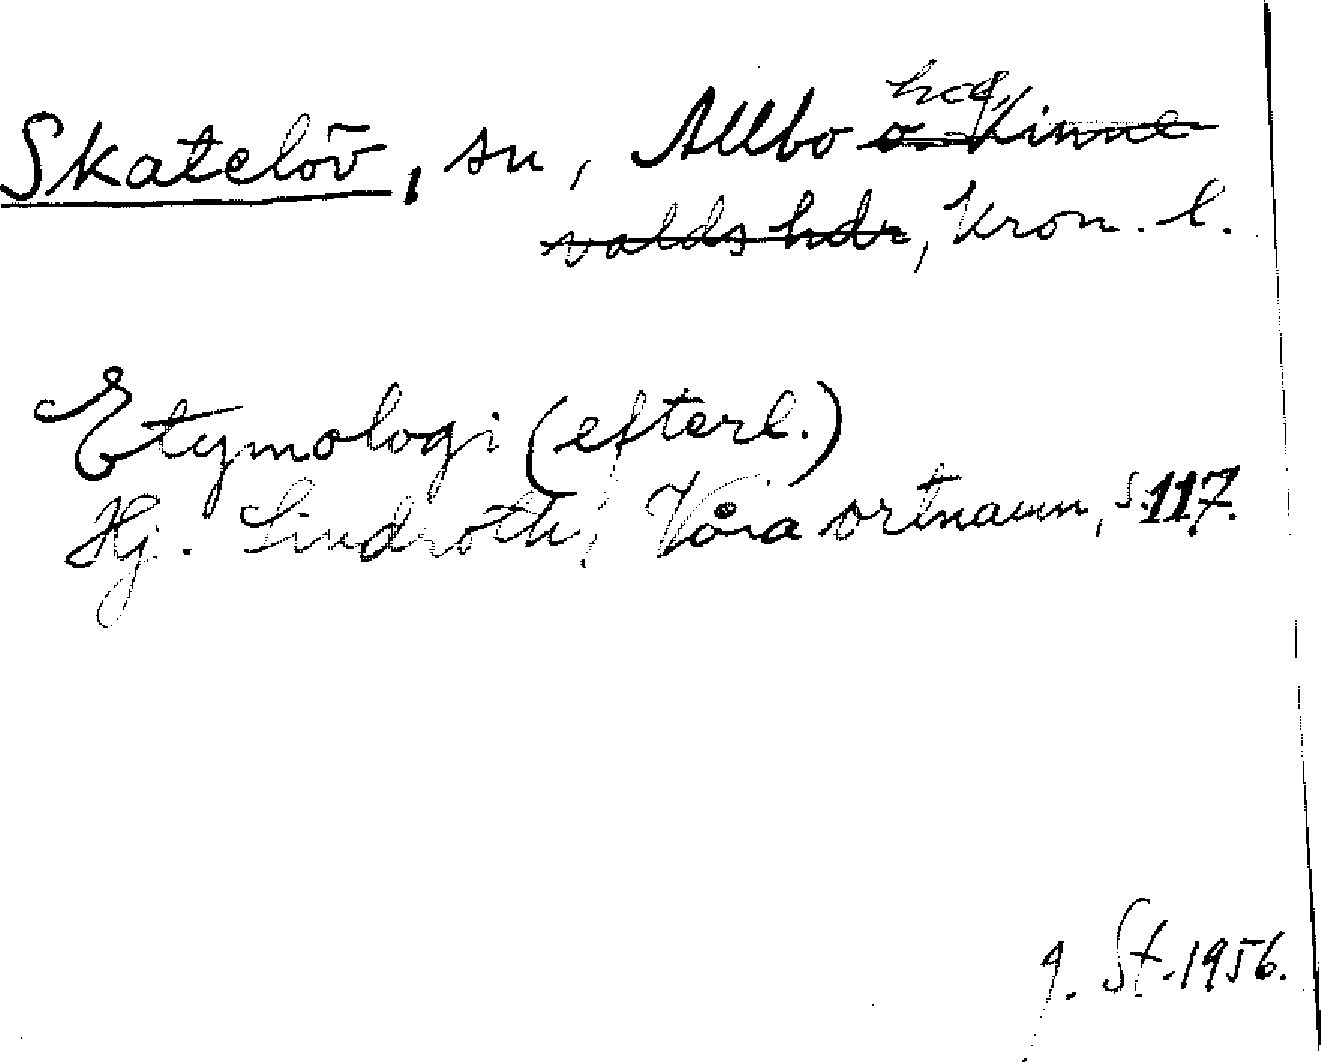 Skatelöv, sn, Allbo hd, o. Kinne
valds hdr, Kron. l.
Etymologi (efterl.)
Hj. Lindroth, Våra ortnamn, s. 117.
J. St. 1956.